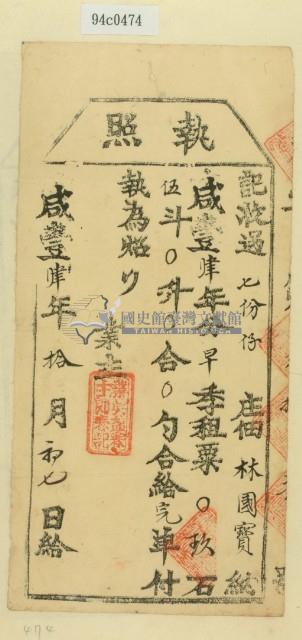 94c0474
執照
記收過七份仔庄佃林國寶納
咸豐肆年分早季租粟〇玖石
伍斗〇升〇合〇勺合給完單付
執為照
業主
咸豐肆年拾月初七日給
國史館臺灣文獻館
TAIWAN HISTORICA
474